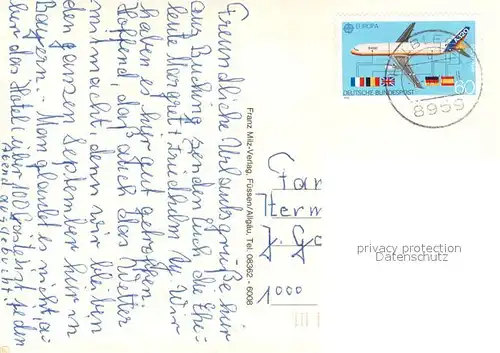 Freundliche Urlaubsgrüße hier
aus Buching senden Euch die Ehe-
leute Margret + Friedhelm. Wir
haben es hier gut getroffen.
Hoffend, daß auch das Wetter
mitmacht, denn wir bleiben
den ganzen September hier in
Bayern. Man glaubt es nicht, a-
ber das Hotel über 100% ist jeden
Abend ausgebucht!
Franz Milz-Verlag, Füssen/Allgäu, Tel. 08362 - 6008
EUROPA
60
DEUTSCHE BUNDESPOST
8959
Fam
Herm
J. G
1000
privacy protection
Datenschutz